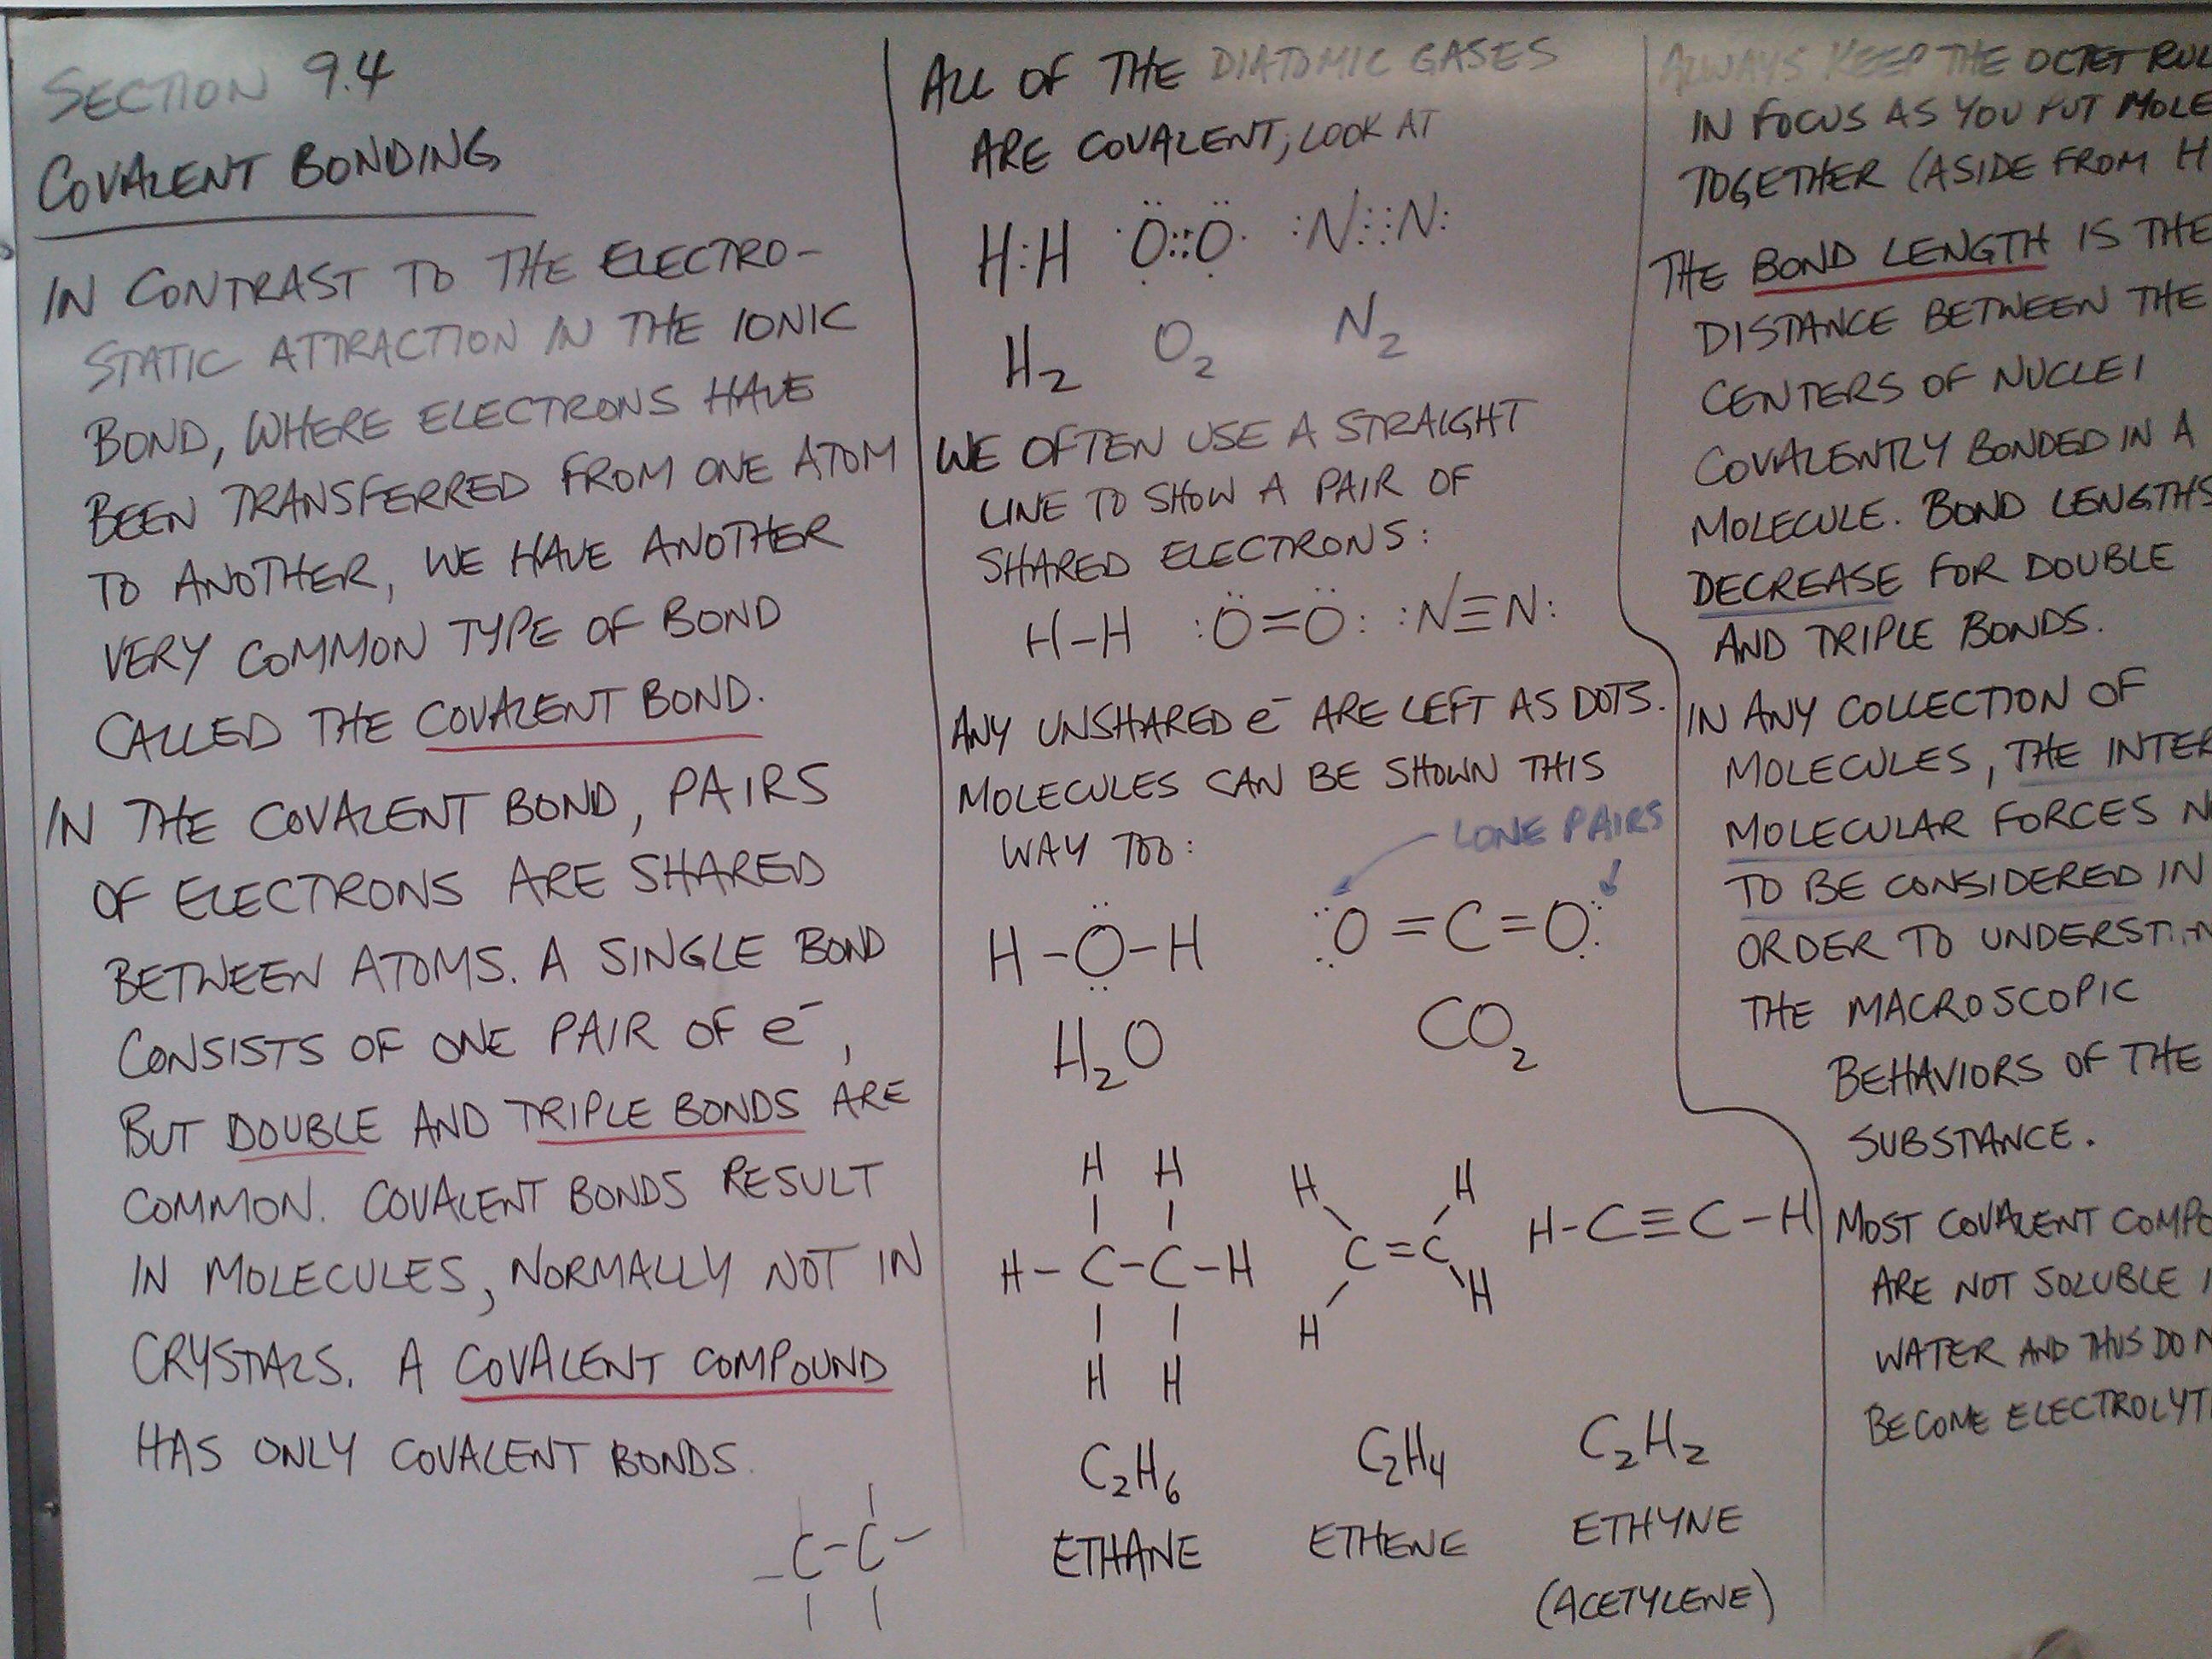 SECTION 9.4
COVALENT BONDING
IN CONTRAST TO THE ELECTRO-
STATIC ATTRACTION IN THE IONIC
BOND, WHERE ELECTRONS HAVE
BEEN TRANSFERRED FROM ONE ATOM
TO ANOTHER, WE HAVE ANOTHER
VERY COMMON TYPE OF BOND
CALLED THE COVALENT BOND.
IN THE COVALENT BOND, PAIRS
OF ELECTRONS ARE SHARED
BETWEEN ATOMS. A SINGLE BOND
CONSISTS OF ONE PAIR OF e⁻,
BUT DOUBLE AND TRIPLE BONDS ARE
COMMON. COVALENT BONDS RESULT
IN MOLECULES, NORMALLY NOT IN
CRYSTALS. A COVALENT COMPOUND
HAS ONLY COVALENT BONDS.
C-C-
ALL OF THE DIATOMIC GASES
ARE COVALENT, LOOK AT
H:H O::O :N:::N:
H₂ O₂ N₂
WE OFTEN USE A STRAIGHT
LINE TO SHOW A PAIR OF
SHARED ELECTRONS:
H-H :Ö=Ö: :N≡N:
ANY UNSHARED e⁻ ARE LEFT AS DOTS.
MOLECULES CAN BE SHOWN THIS
WAY TOO:
LONE PAIRS
H-O-H O=C=O
H₂O CO₂
H H H H
H-C-C-H C=C H-C≡C-H
H H H H
C₂H₆ C₂H₄ C₂H₂
ETHANE ETHENE ETHYNE
(ACETYLENE)
ALWAYS KEEP THE OCTET RUL
IN FOCUS AS YOU PUT MOLE
TOGETHER (ASIDE FROM H
THE BOND LENGTH IS THE
DISTANCE BETWEEN THE
CENTERS OF NUCLEI
COVALENTLY BONDED IN A
MOLECULE. BOND LENGTHS
DECREASE FOR DOUBLE
AND TRIPLE BONDS.
IN ANY COLLECTION OF
MOLECULES, THE INTER
MOLECULAR FORCES N
TO BE CONSIDERED IN
ORDER TO UNDERST
THE MACROSCOPIC
BEHAVIORS OF THE
SUBSTANCE.
MOST COVALENT COMPO
ARE NOT SOLUBLE I
WATER AND THUS DO N
BECOME ELECTROLYT